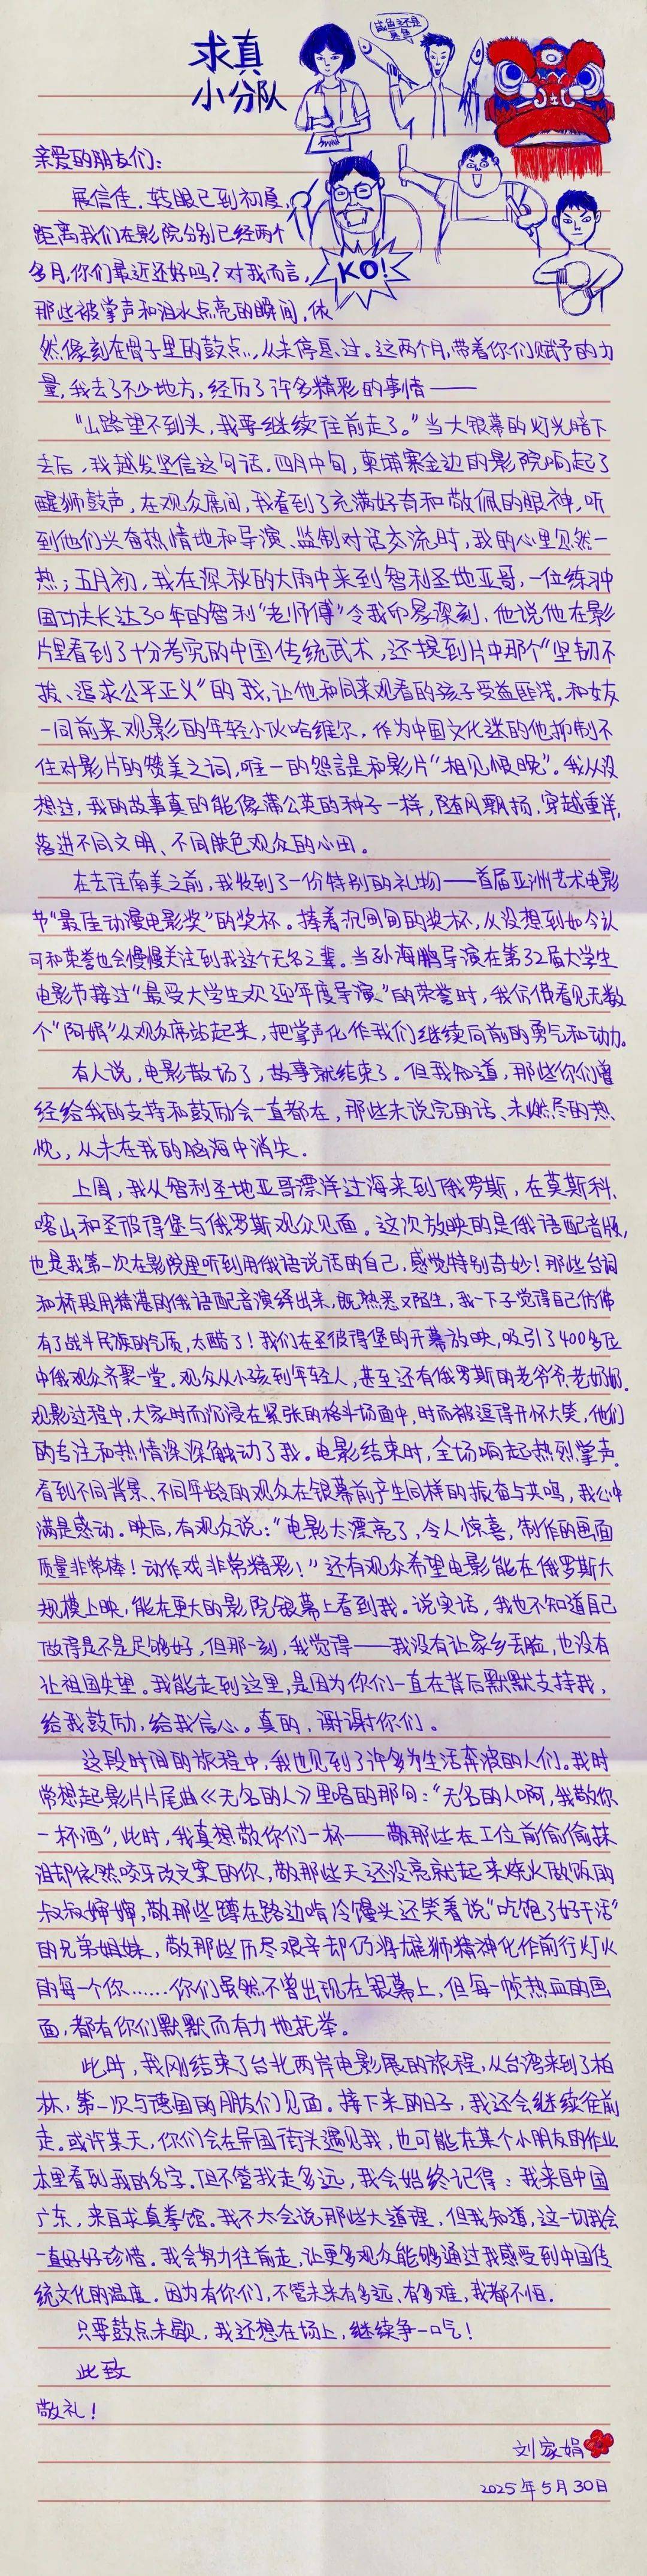 求真
小分队
咸鱼还是
臭鱼
亲爱的朋友们：
展信佳。转眼已到初夏，
距离我们在影院分别已经两个
多月，你们最近还好吗？对我而言，
KO!
那些被掌声和泪水点亮的瞬间，依
然像刻在骨子里的鼓点，从未停息过。这两个月，带着你们赋予的力
量，我去了不少地方，经历了许多精彩的事情——
“山路望不到头，我要继续往前走了。”当大银幕的灯光暗下
去后，我越发坚信这句话。四月中旬，柬埔寨金边的影院响起了
醒狮鼓声，在观众席间，我看到了充满好奇和敬佩的眼神，听
到他们兴奋热情地和导演、监制对话交流时，我的心里忽然一
热；五月初，我在深秋的大雨中来到智利圣地亚哥，一位练习中
国功夫长达30年的智利“老师傅”令我印象深刻，他说他在影
片里看到了十分考究的中国传统武术，还提到片中那个“坚韧不
拔、追求公平正义”的我，让他和同来观看的孩子受益匪浅。和女友
一同前来观影的年轻小伙哈维尔，作为中国文化迷的他抑制不
住对影片的赞美之词，唯一的怨言是和影片“相见恨晚”。我从没
想过，我的故事真的能像蒲公英的种子一样，随风飘扬，穿越重洋，
落进不同文明、不同肤色观众的心田。
在去往南美之前，我收到了一份特别的礼物——首届亚洲艺术电影
节“最佳动漫电影奖”的奖杯。捧着沉甸甸的奖杯，从没想到如今认
可和荣誉也会慢慢关注到我这个无名之辈。当孙海鹏导演在第32届大学生
电影节接过“最受大学生欢迎年度导演”的荣誉时，我仿佛看见无数
个“阿娟”从观众席站起来，把掌声化作我们继续向前的勇气和动力。
有人说，电影散场了，故事就结束了。但我知道，那些你们曾
经给我的支持和鼓励会一直都在，那些未说完的话、未燃尽的热
忱，从未在我的脑海中消失。
上周，我从智利圣地亚哥漂洋过海来到俄罗斯，在莫斯科、
喀山和圣彼得堡与俄罗斯观众见面。这次放映的是俄语配音版，
也是我第一次在影院里听到用俄语说话的自己，感觉特别奇妙！那些台词
和桥段用精湛的俄语配音演绎出来，既熟悉又陌生，我一下子觉得自己仿佛
有了战斗民族的气质，太酷了！我们在圣彼得堡的开幕放映，吸引了400多位
中俄观众齐聚一堂。观众从小孩到年轻人，甚至还有俄罗斯的老爷爷老奶奶。
观影过程中，大家时而沉浸在紧张的格斗场面中，时而被逗得开怀大笑，他们
的专注和热情深深触动了我。电影结束时，全场响起热烈掌声。
看到不同背景、不同年龄的观众在银幕前产生同样的振奋与共鸣，我心中
满是感动。映后，有观众说：“电影太漂亮了，令人惊喜，制作的画面
质量非常棒！动作戏非常精彩！”还有观众希望电影能在俄罗斯大
规模上映，能在更大的影院银幕上看到我。说实话，我也不知道自己
做得是不是足够好，但那一刻，我觉得——我没有让家乡丢脸，也没有
让祖国失望。我能走到这里，是因为你们一直在背后默默支持我，
给我鼓励，给我信心。真的，谢谢你们。
这段时间的旅程中，我也见到了许多为生活奔波的人们。我时
常想起影片片尾曲《无名的人》里唱的那句：“无名的人啊，我敬你
一杯酒”，此时，我真想敬你们一杯——敬那些在工位前偷偷抹
泪却依然咬牙改文案的你，敬那些天还没亮就起来烧火做饭的
叔叔婶婶，敬那些蹲在路边啃冷馒头还笑着说“吃饱了好干活”
的兄弟姐妹，敬那些历尽艰辛却仍将雄狮精神化作前行灯火
的每一个你……你们虽然不曾出现在银幕上，但每一帧热血的画
面，都有你们默默而有力地托举。
此时，我刚结束了台北两岸电影展的旅程，从台湾来到了柏
林，第一次与德国的朋友们见面。接下来的日子，我还会继续往前
走。或许某天，你们会在异国街头遇见我，也可能在某个小朋友的作业
本里看到我的名字。但不管我走多远，我会始终记得：我来自中国
广东，来自求真拳馆。我不太会说那些大道理，但我知道，这一切我会
一直好好珍惜。我会努力往前走，让更多观众能够通过我感受到中国传
统文化的温度。因为有你们，不管未来有多远、有多难，我都不怕。
只要鼓点未歇，我还想在场上，继续争一口气！
此致
敬礼！
刘家娟
2025年5月30日